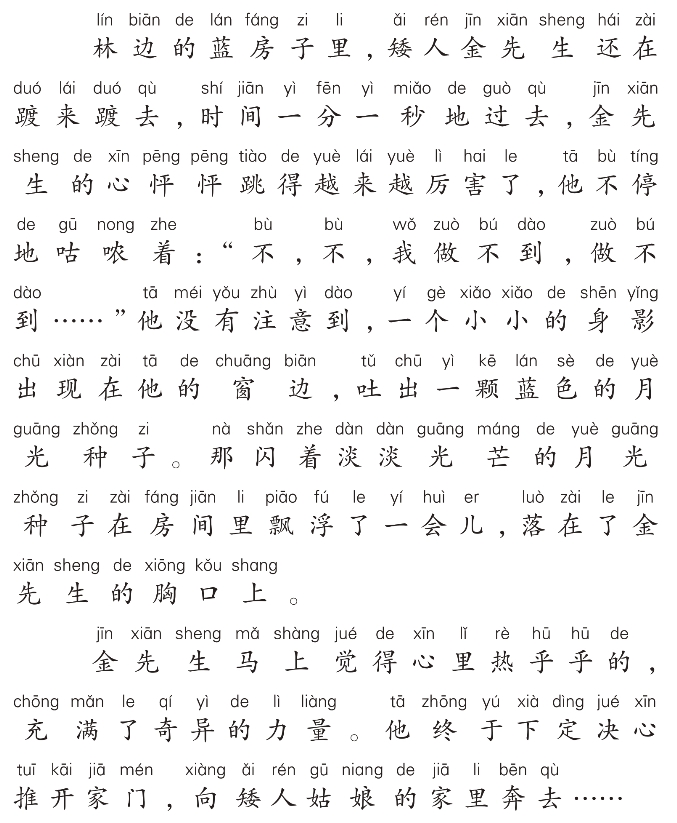 lín biān de lán fáng zi li ǎi rén jīn xiān sheng hái zài
林边的蓝房子里，矮人金先生还在
duó lái duó qù shí jiān yì fēn yì miǎo de guò qù jīn xiān
踱来踱去，时间一分一秒地过去，金先
sheng de xīn pēng pēng tiào de yuè lái yuè lì hai le tā bù tíng
生的心怦怦跳得越来越厉害了，他不停
de gū nong zhe bù bù wǒ zuò bú dào zuò bú
地咕哝着：“不，不，我做不到，做不
dào tā méi yǒu zhù yì dào yí gè xiǎo xiǎo de shēn yǐng
到……”他没有注意到，一个小小的身影
chū xiàn zài tā de chuāng biān tǔ chū yì kē lán sè de yuè
出现在他的窗边，吐出一颗蓝色的月
guāng zhǒng zi nà shǎn zhe dàn dàn guāng máng de yuè guāng
光种子。那闪着淡淡光芒的月光
zhǒng zi zài fáng jiān li piāo fú le yí huì er luò zài le jīn
种子在房间里飘浮了一会儿，落在了金
xiān sheng de xiōng kǒu shang
先生的胸口上。
jīn xiān sheng mǎ shàng jué de xīn lǐ rè hū hū de
金先生马上觉得心里热乎乎的，
chōng mǎn le qí yì de lì liàng tā zhōng yú xià dìng jué xīn
充满了奇异的力量。他终于下定决心
tuī kāi jiā mén xiàng ǎi rén gū niang de jiā li bēn qù
推开家门，向矮人姑娘的家里奔去……